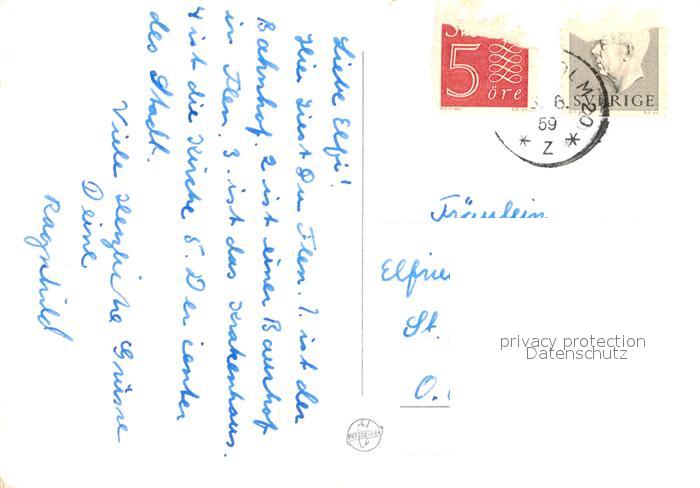 Liebe Elfi!
Hier siest Du Flen. 1. ist der
Bahnhof. 2 ist einer Bauhof
in Flen. 3. ist das Krakenhaus.
4 ist die Kirche 5. Der center
des Stadt.
Viele Herzliche Grüsse
Deine
Ragnhild
5
öre
SVERIGE
OLM 20
6.
59
* Z *
Fräulein
Elfrie
St.
O.
privacy protection
Datenschutz